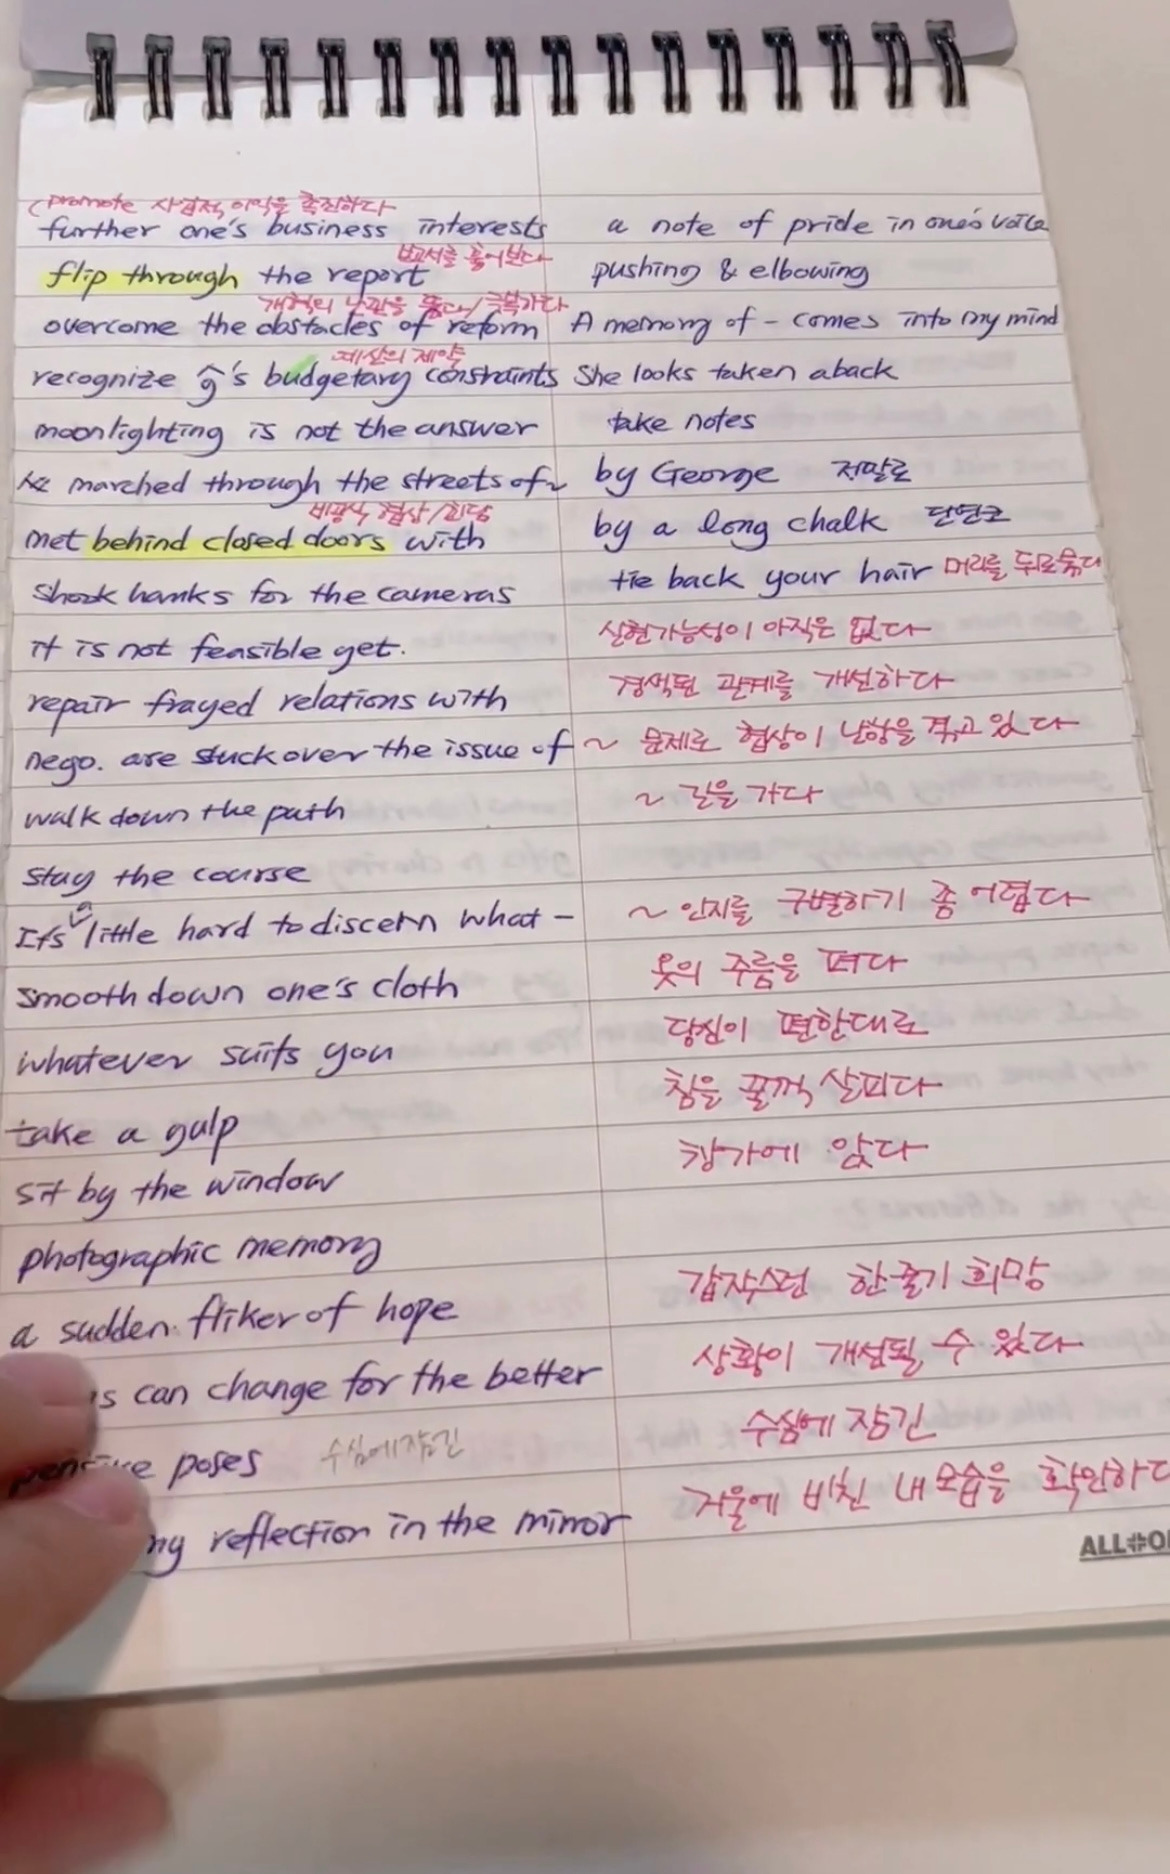 (promote 사업적 이익을 촉진하다
further one's business interests
보고서를 훑어보다
flip through the report
개혁의 난관을 뚫다/극복하다
overcome the obstacles of reform
예산의 제약
recognize g's budgetary constraints
moonlighting is not the answer
marched through the streets of ~
비공식 협상/회담
met behind closed doors with
Shook hanks for the cameras
it is not feasible yet.
repair frayed relations with
nego. are stuck over the issue of
walk down the path
stay the course
It's a little hard to discern what -
smooth down one's cloth
whatever suits you
take a gulp
sit by the window
photographic memory
a sudden fliker of hope
can change for the better
poses 수심에 잠긴
my reflection in the mirror
a note of pride in one's voice
pushing & elbowing
A memory of - comes into my mind
She looks taken aback
take notes
by George 정말로
by a long chalk 단연코
tie back your hair 머리를 뒤로 묶다
실현가능성이 아직은 없다
경색된 관계를 개선하다
~ 문제로 협상이 난항을 겪고 있다
~ 길을 가다
~ 인지를 구별하기 좀 어렵다
옷의 주름을 펴다
당신이 편한대로
침을 꿀꺽 삼키다
창가에 앉다
갑작스런 한 줄기 희망
상황이 개선될 수 있다
수심에 잠긴
거울에 비친 내 모습을 확인하다